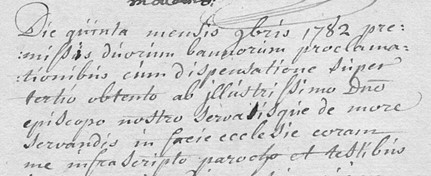 Die quinta mensis 9bris 1782 pre:
:missis duorum bannorum proclama:
:tionibus cum dispensatione super
tertio obtento ab illustrissimo Dno
episcopo nostro servatisque de more
servandis in facie ecclesie coram
me infrascripto parocho et testibus